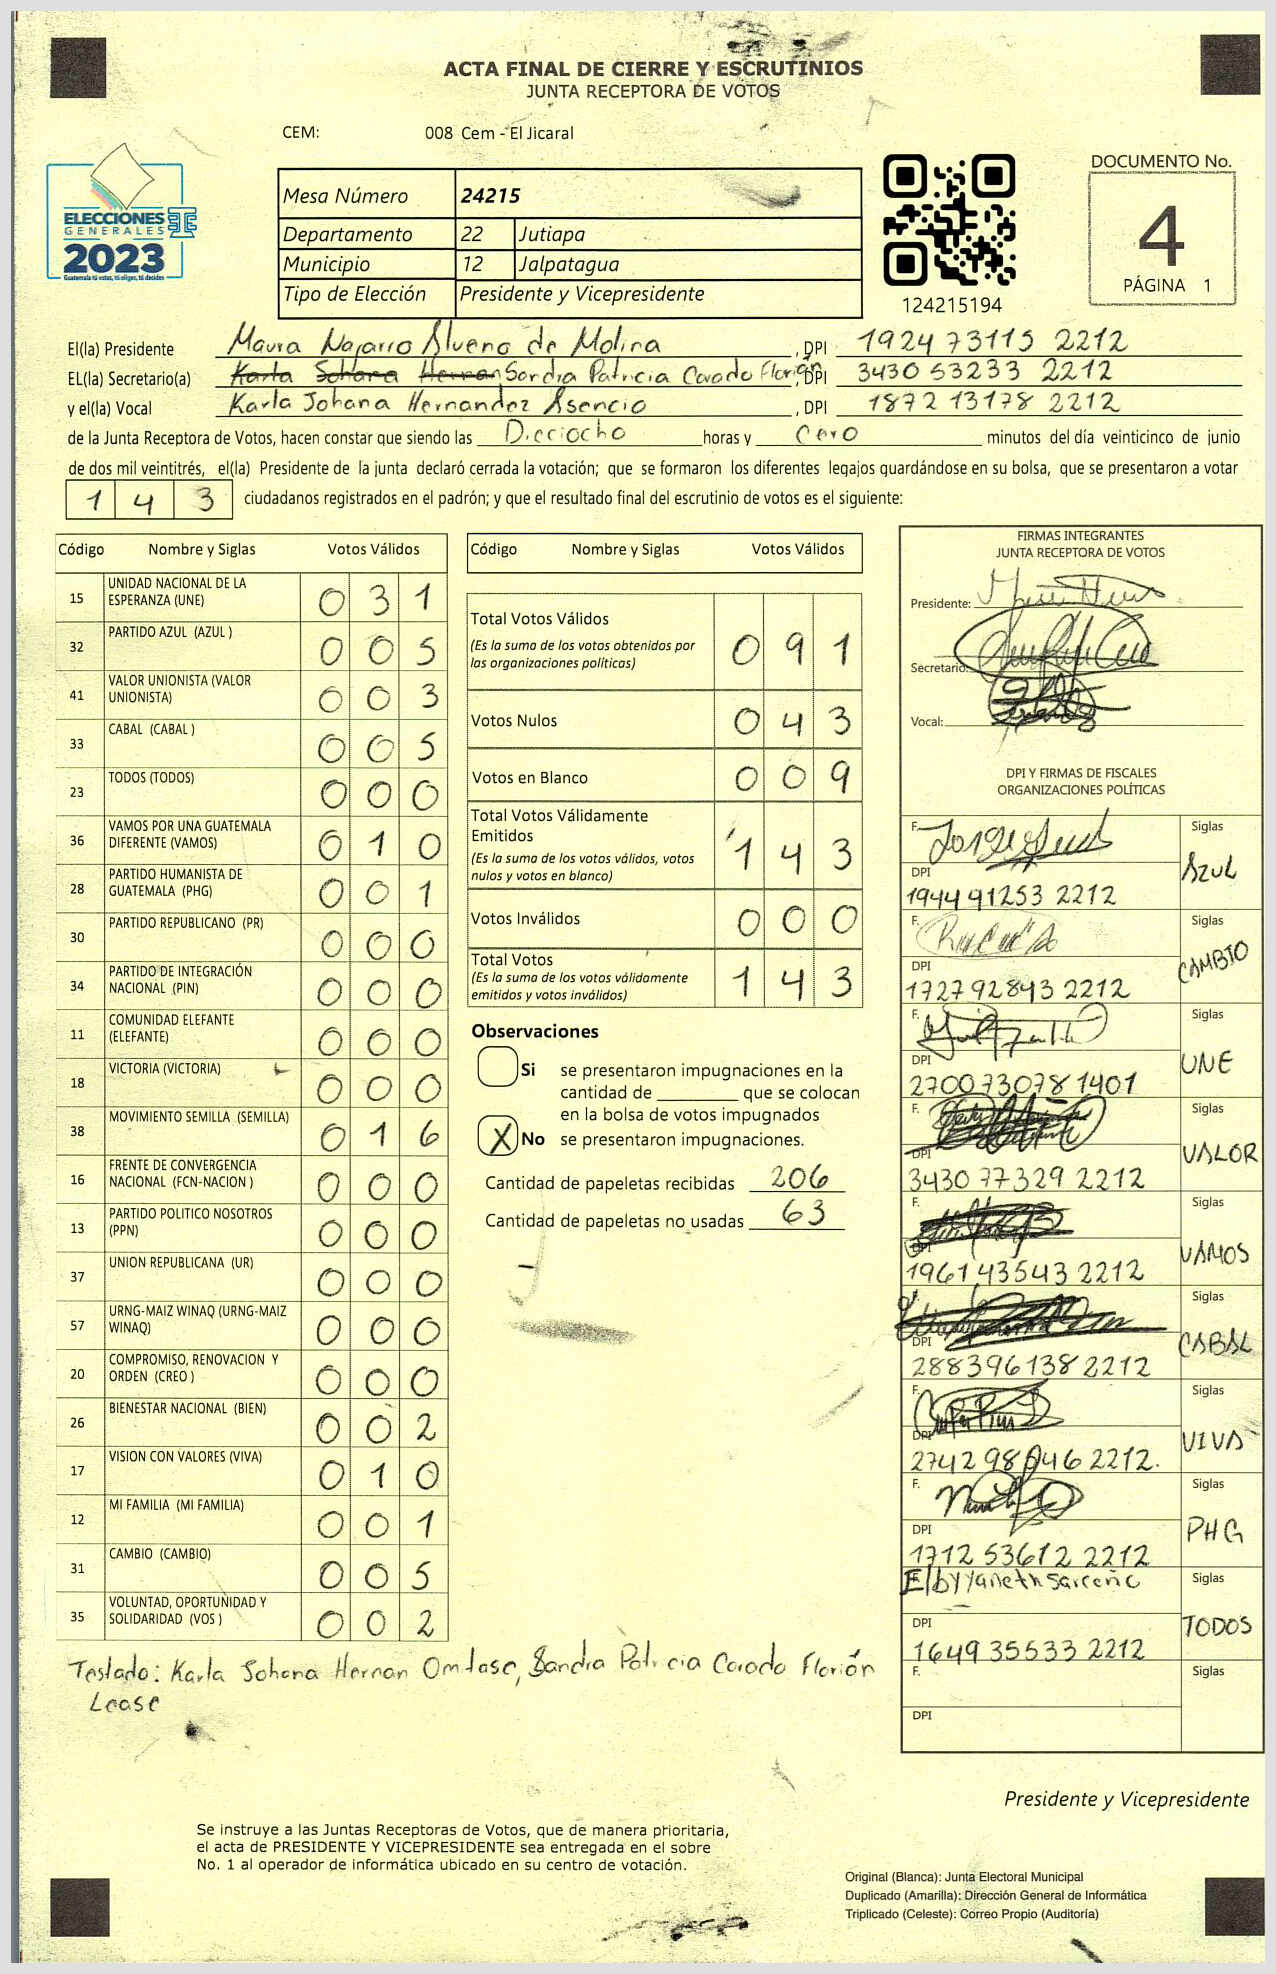 ACTA FINAL DE CIERRE Y ESCRUTINIOS
JUNTA RECEPTORA DE VOTOS
CEM: 008 Cem - El Jicaral
ELECCIONES
GENERALES
2023
Guatemala tú votas, tú eliges, tú decides
Mesa Número 24215
Departamento 22 Jutiapa
Municipio 12 Jalpatagua
Tipo de Elección Presidente y Vicepresidente
124215194
DOCUMENTO No.
4
PÁGINA 1
El(la) Presidente Maura Najarro Alueno de Molina , DPI 1924 73115 2212
EL(la) Secretario(a) Karla Johana Hernan Sandra Patricia Corado Florián , DPI 3430 53233 2212
y el(la) Vocal Karla Johana Hernandez Asencio , DPI 1872 13178 2212
de la Junta Receptora de Votos, hacen constar que siendo las Dieciocho horas y Cero minutos del día veinticinco de junio
de dos mil veintitrés, el(la) Presidente de la junta declaró cerrada la votación; que se formaron los diferentes legajos guardándose en su bolsa, que se presentaron a votar
1 4 3 ciudadanos registrados en el padrón; y que el resultado final del escrutinio de votos es el siguiente:
Código Nombre y Siglas Votos Válidos
15 UNIDAD NACIONAL DE LA ESPERANZA (UNE) 0 3 1
32 PARTIDO AZUL (AZUL ) 0 0 5
41 VALOR UNIONISTA (VALOR UNIONISTA) 0 0 3
33 CABAL (CABAL ) 0 0 5
23 TODOS (TODOS) 0 0 0
36 VAMOS POR UNA GUATEMALA DIFERENTE (VAMOS) 0 1 0
28 PARTIDO HUMANISTA DE GUATEMALA (PHG) 0 0 1
30 PARTIDO REPUBLICANO (PR) 0 0 0
34 PARTIDO DE INTEGRACIÓN NACIONAL (PIN) 0 0 0
11 COMUNIDAD ELEFANTE (ELEFANTE) 0 0 0
18 VICTORIA (VICTORIA) 0 0 0
38 MOVIMIENTO SEMILLA (SEMILLA) 0 1 6
16 FRENTE DE CONVERGENCIA NACIONAL (FCN-NACION ) 0 0 0
13 PARTIDO POLITICO NOSOTROS (PPN) 0 0 0
37 UNION REPUBLICANA (UR) 0 0 0
57 URNG-MAIZ WINAQ (URNG-MAIZ WINAQ) 0 0 0
20 COMPROMISO, RENOVACION Y ORDEN (CREO ) 0 0 0
26 BIENESTAR NACIONAL (BIEN) 0 0 2
17 VISION CON VALORES (VIVA) 0 1 0
12 MI FAMILIA (MI FAMILIA) 0 0 1
31 CAMBIO (CAMBIO) 0 0 5
35 VOLUNTAD, OPORTUNIDAD Y SOLIDARIDAD (VOS ) 0 0 2
Código Nombre y Siglas Votos Válidos
Total Votos Válidos 0 9 1
(Es la suma de los votos obtenidos por
las organizaciones políticas)
Votos Nulos 0 4 3
Votos en Blanco 0 0 9
Total Votos Válidamente
Emitidos 1 4 3
(Es la suma de los votos válidos, votos
nulos y votos en blanco)
Votos Inválidos 0 0 0
Total Votos 1 4 3
(Es la suma de los votos válidamente
emitidos y votos inválidos)
Observaciones
Si se presentaron impugnaciones en la
cantidad de ________ que se colocan
en la bolsa de votos impugnados
X No se presentaron impugnaciones.
Cantidad de papeletas recibidas 206
Cantidad de papeletas no usadas 63
FIRMAS INTEGRANTES
JUNTA RECEPTORA DE VOTOS
Presidente:
Secretario:
Vocal:
DPI Y FIRMAS DE FISCALES
ORGANIZACIONES POLÍTICAS
F. Siglas
DPI AZUL
1944 91253 2212
F. Siglas
DPI CAMBIO
1727 92843 2212
F. Siglas
DPI UNE
2700 73078 1401
F. Siglas
DPI VALOR
3430 77329 2212
F. Siglas
DPI VAMOS
1961 43543 2212
F. Siglas
DPI CABAL
2883961382212
F. Siglas
DPI VIVA
2742 98046 2212.
F. Siglas
DPI PHG
1712 53612 2212
F. Elby Yaneth Sarceño Siglas
DPI TODOS
1649 35533 2212
F. Siglas
DPI
Testado: Karla Johana Hernan Omitase, Sandra Patricia Corado Florián
Lease
Presidente y Vicepresidente
Se instruye a las Juntas Receptoras de Votos, que de manera prioritaria,
el acta de PRESIDENTE Y VICEPRESIDENTE sea entregada en el sobre
No. 1 al operador de informática ubicado en su centro de votación.
Original (Blanca): Junta Electoral Municipal
Duplicado (Amarilla): Dirección General de Informática
Triplicado (Celeste): Correo Propio (Auditoría)